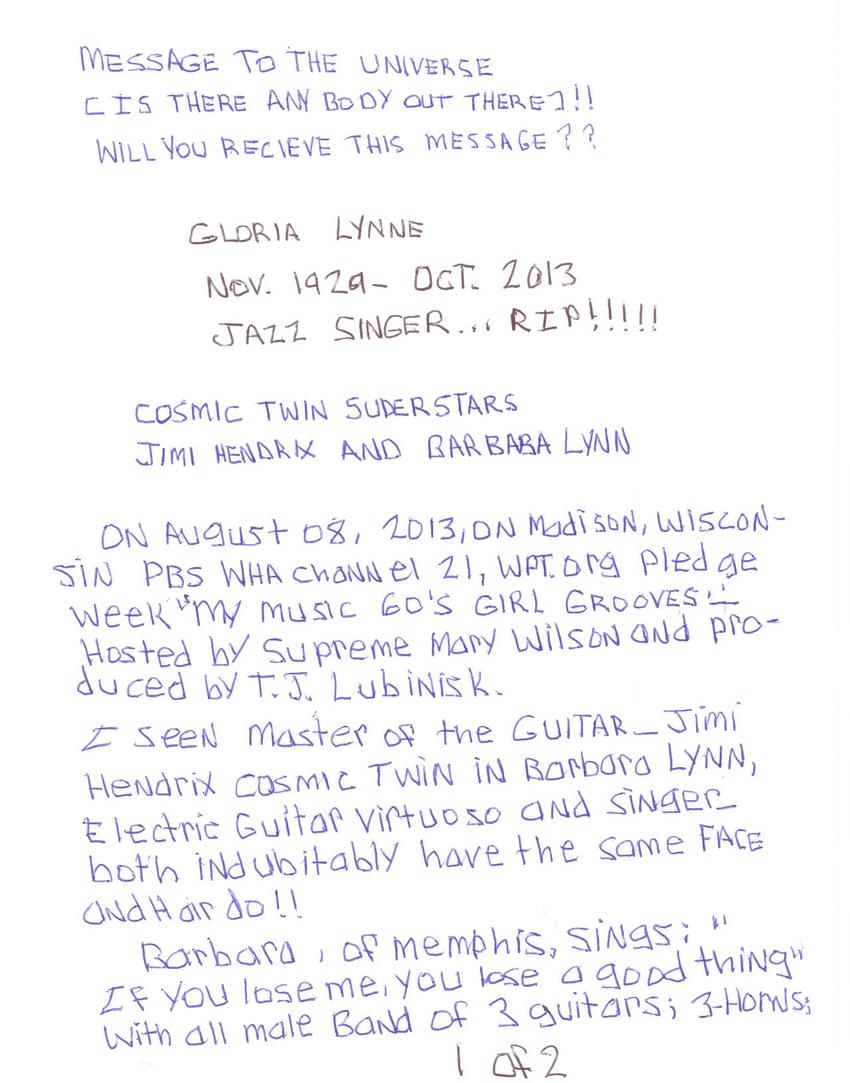 MESSAGE TO THE UNIVERSE
[IS THERE ANY BODY OUT THERE]!!
WILL YOU RECIEVE THIS MESSAGE??
GLORIA LYNNE
NOV. 1929- OCT. 2013
JAZZ SINGER... RIP!!!!!
COSMIC TWIN SUPERSTARS
JIMI HENDRIX AND BARBABA LYNN
ON AUgust 08, 2013, ON MadisoN, WISCON-
SIN PBS WHA chaNNel 21, WPT.org Pledge
week "MY MUSIC 60'S GIRL GROOVES"-
Hosted by Supreme Mary WilsoN and pro-
duced by T.J. LubiNisk.
I seeN Master of the GUITAR_Jimi
HeNdrix COSMIC TWIN IN Barbara LYNN,
Electric Guitar virtuoso and siNger_
both iNdubitably have the same FACE
aNd Hair do!!
Barbara, of memphis, sings; "
If you lose me, you lose a good thing"
with all male BaNd of 3 guitars; 3-HorNs;
1 of 2